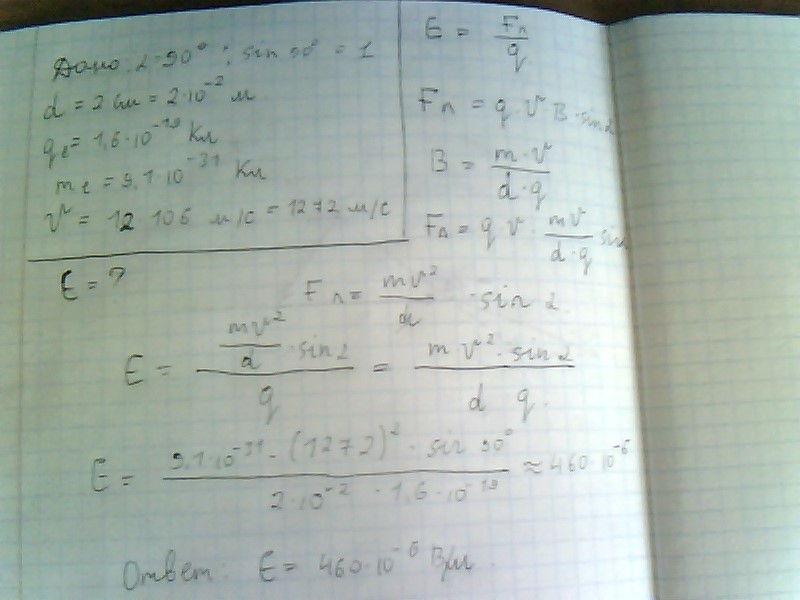 Дано: α=90°; sin 90° = 1
d = 2 см = 2·10⁻² м
qe = 1,6·10⁻¹⁹ Кл
me = 9,1·10⁻³¹ Кл
v = 12 106 м/с = 1272 м/с
E = ?
E = Fл / q
Fл = q·v B·sin α
B = m·v / d·q
Fл = q v · mv / d·q sin
Fл = mv² / d · sin α
E = (mv² / d · sin α) / q = m v²·sin α / d q.
E = 9,1·10⁻³¹ · (1272)² · sin 90° / 2·10⁻² · 1,6·10⁻¹⁹ ≈ 460·10⁻⁶
Ответ: E = 460·10⁻⁶ В/м.